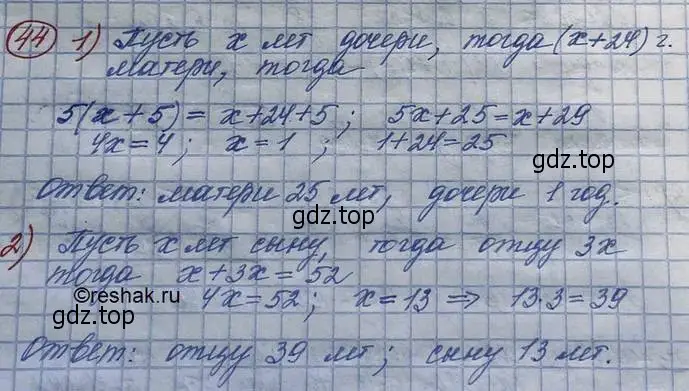 44 1) Пусть x лет дочери, тогда (x+24) г.
матери, тогда
5(x+5) = x+24+5; 5x+25=x+29
4x=4; x=1; 1+24=25
gdz.top
Ответ: матери 25 лет, дочери 1 год.
gdz.top
2) Пусть x лет сыну, тогда отцу 3x
тогда x+3x=52
©reshak.ru
4x=52; x=13 ⇒ 13·3=39
gdz.top
gdz.top
Ответ: отцу 39 лет; сыну 13 лет.